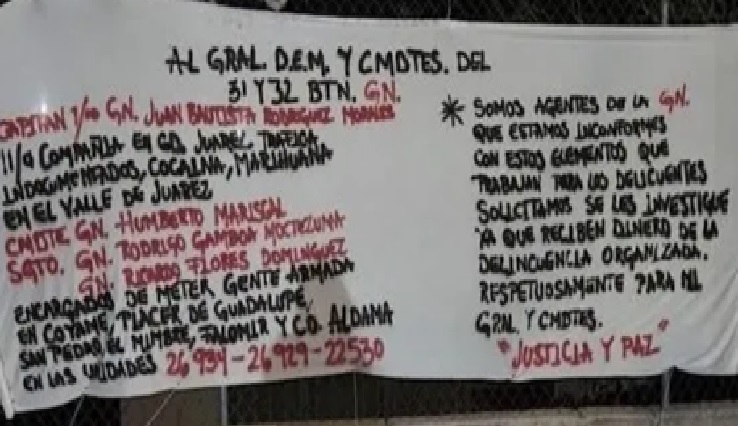 AL GRAL. D.E.M. Y CMDTES. DEL
31 Y 32 BTN. GN.
CAPITAN 1/oo GN. JUAN BAUTISTA RODRIGUEZ MORALES
11/a COMPAÑIA EN CD. JUAREZ TRAFICA
INDOCUMENTADOS, COCAINA, MARIHUANA
EN EL VALLE DE JUAREZ
CMDTE GN. HUMBERTO MARISCAL
SGTO. GN. RODRIGO GAMBOA MOCTEZUMA
GN. RICARDO FLORES DOMINGUEZ
ENCARGADOS DE METER GENTE ARMADA
EN COYAME, PLACER DE GUADALUPE,
SAN PEDRO, EL MIMBRE, FALOMIR Y CD. ALDAMA
EN LAS UNIDADES 26934-26929-22530
* SOMOS AGENTES DE LA GN.
QUE ESTAMOS INCONFORMES
CON ESTOS ELEMENTOS QUE
TRABAJAN PARA LOS DELICUENTES
SOLICITAMOS SE LES INVESTIGUE
YA QUE RECIBEN DINERO DE LA
DELINCUENCIA ORGANIZADA.
RESPETUOSAMENTE PARA MI
GRAL. Y CMDTES.
"JUSTICIA Y PAZ"